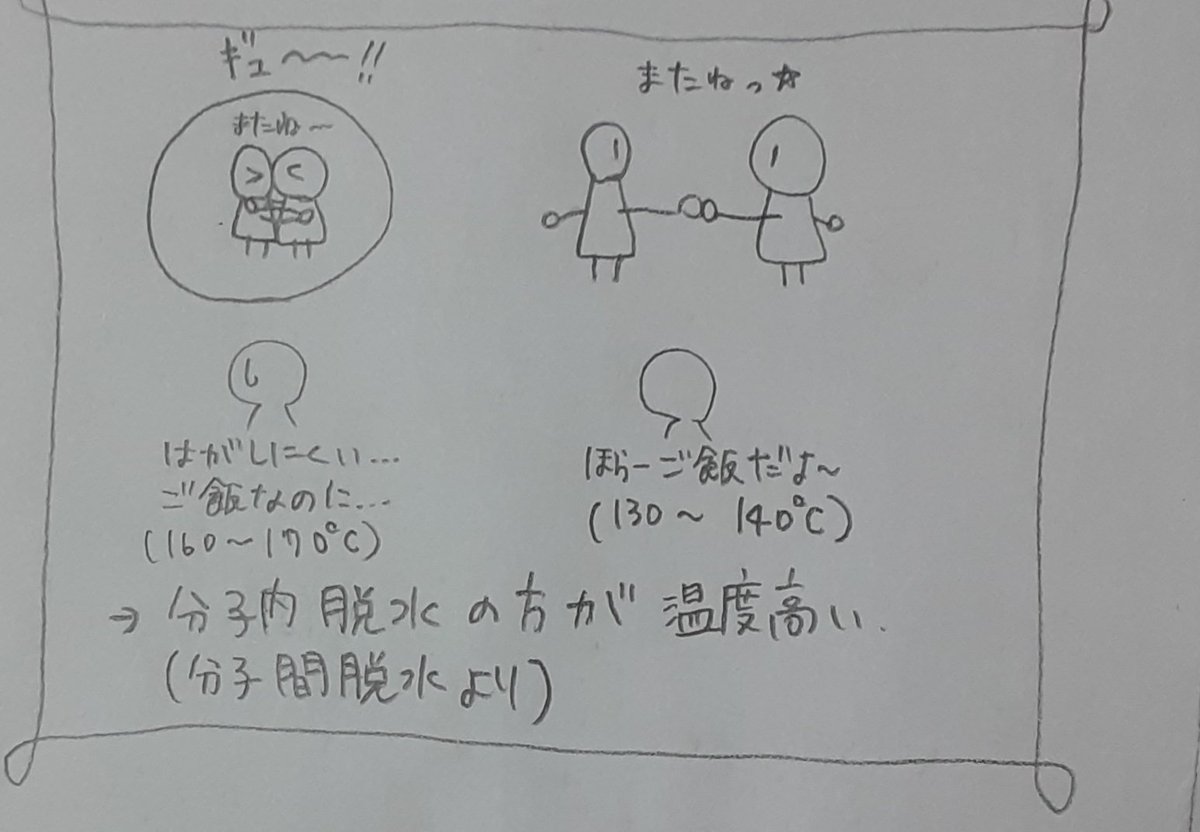 ギュ〜〜!!
またね〜
またねっ☆
はがしにくい…
ご飯なのに…
(160〜170℃)
ほらーご飯だよ〜
(130〜140℃)
→分子内脱水の方が温度高い.
(分子間脱水より)